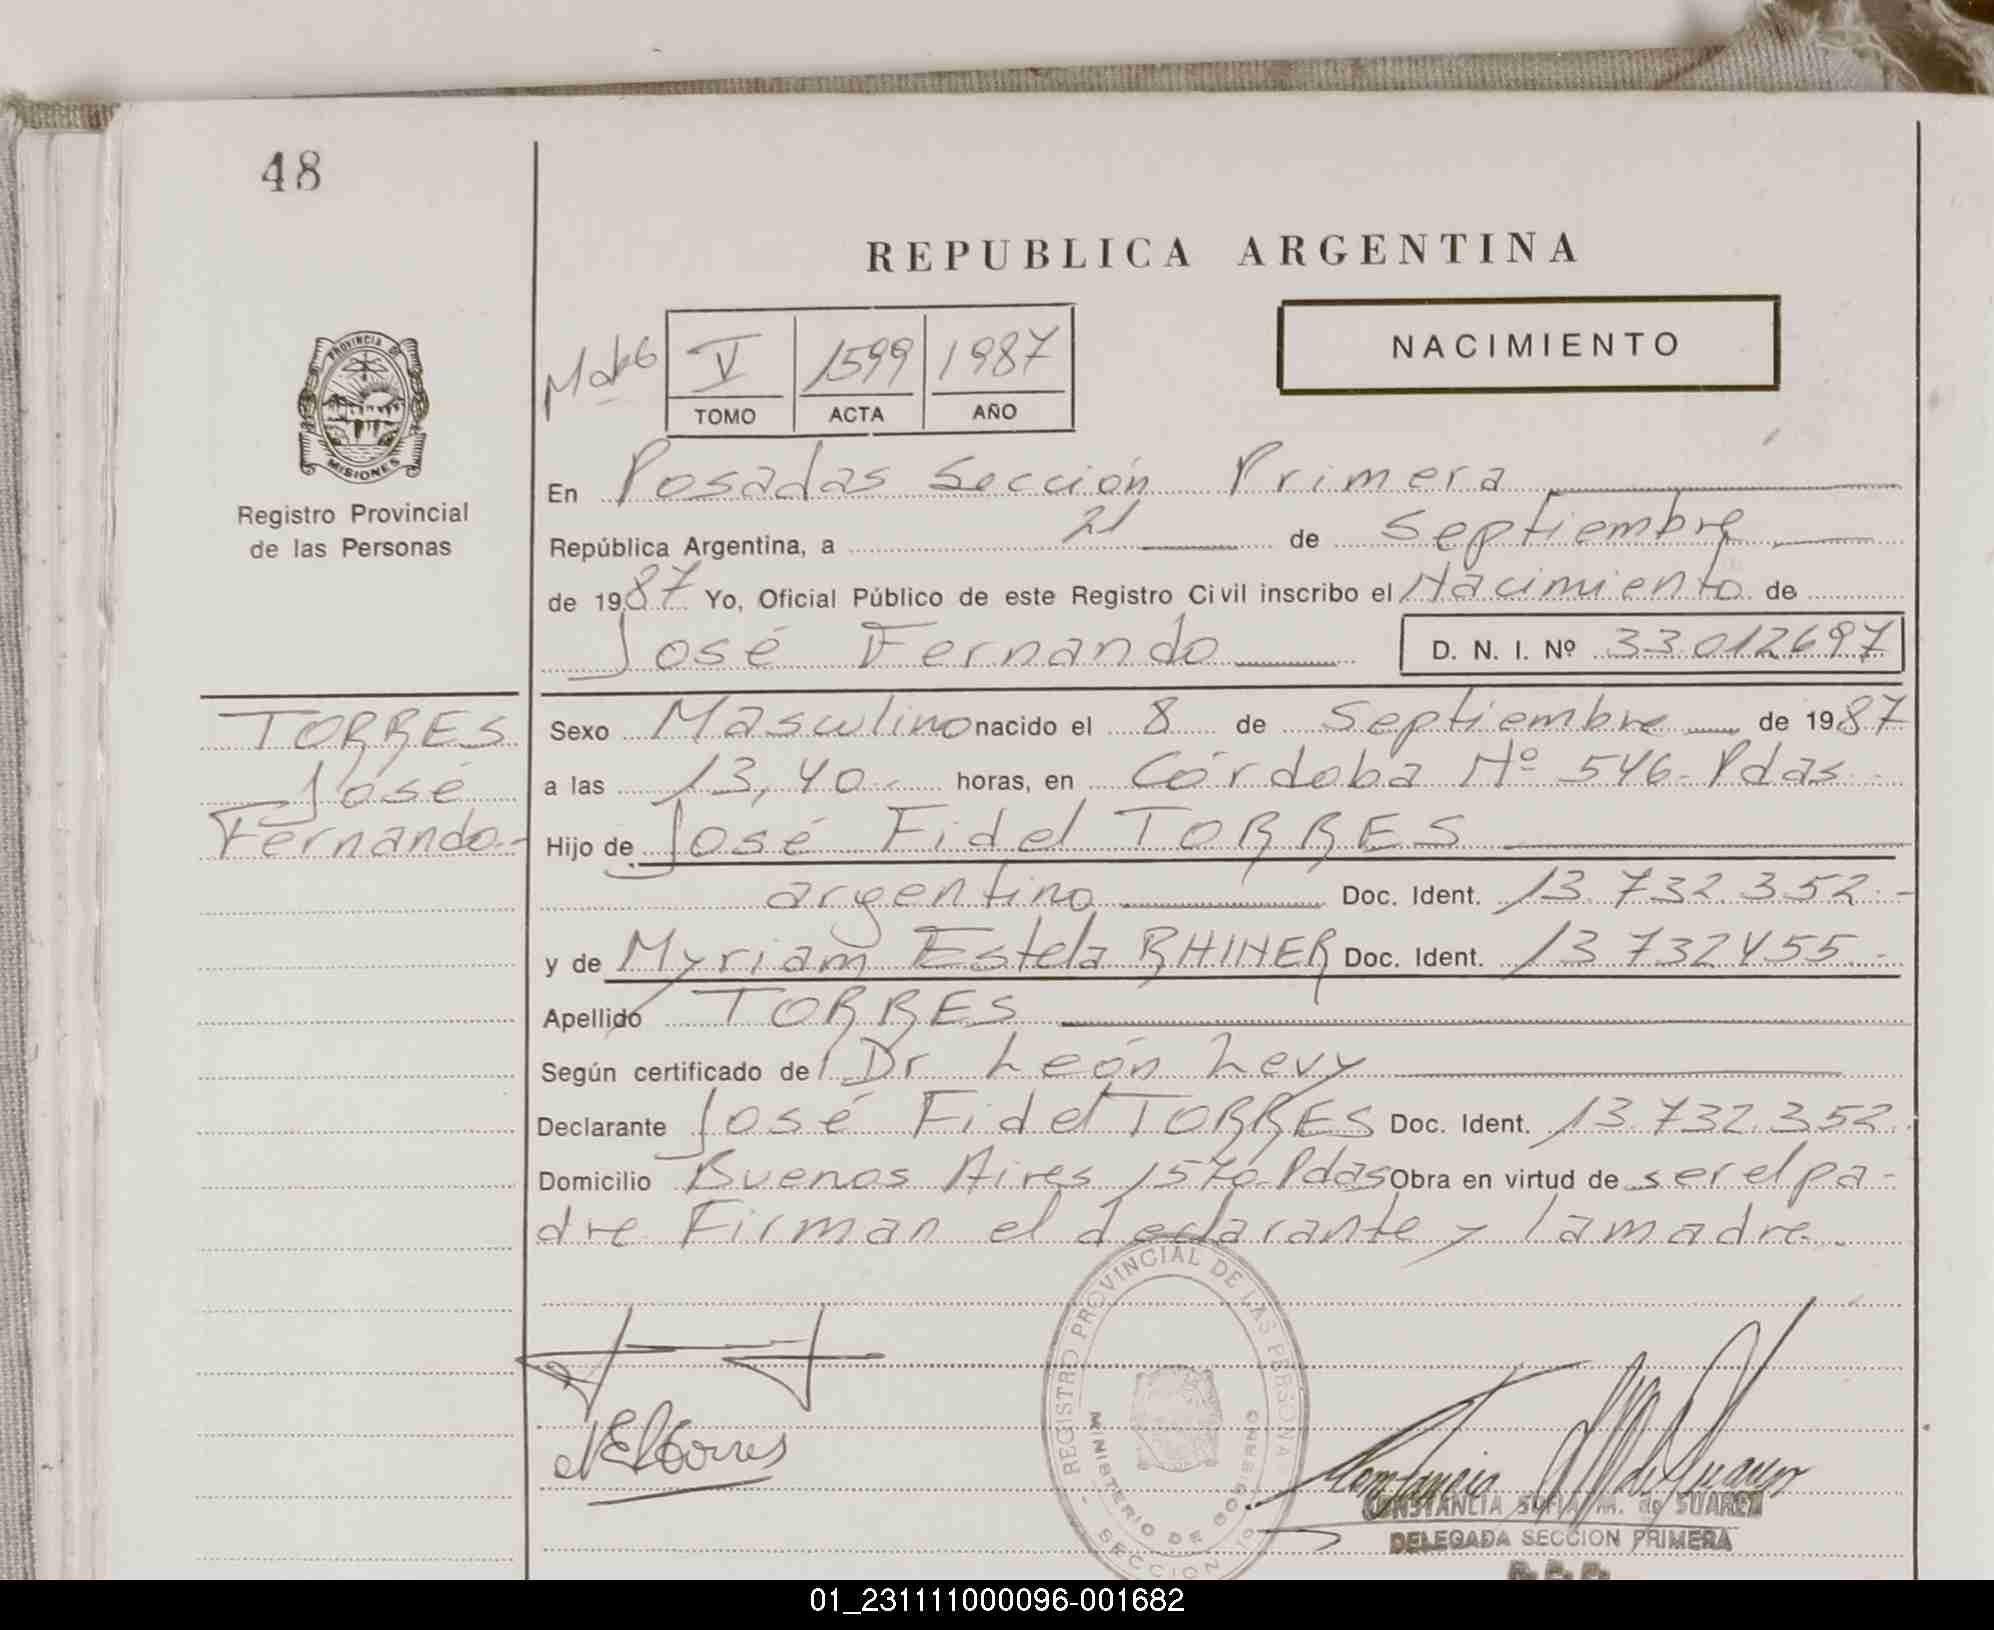 48
REPUBLICA ARGENTINA
V 1599 1987
TOMO ACTA AÑO
NACIMIENTO
PROVINCIA DE MISIONES
Registro Provincial
de las Personas
En Posadas Sección Primera
República Argentina, a 21 de Septiembre
de 1987 Yo, Oficial Público de este Registro Civil inscribo el Nacimiento de
José Fernando D. N. I. Nº 33012697
TORRES
José
Fernando.-
Sexo Masculino nacido el 8 de Septiembre de 1987
a las 13,40 horas, en Córdoba Nº 546-Pdas.-
Hijo de José Fidel TORRES
argentino Doc. Ident. 13.732.352.-
y de Myriam Estela RHINER Doc. Ident. 13 732455.-
Apellido TORRES
Según certificado de Dr León Levy
Declarante José Fidel TORRES Doc. Ident. 13.732.352.
Domicilio Buenos Aires 1570-Pdas Obra en virtud de ser el pa-
dre. Firman el declarante y la madre.-
REGISTRO PROVINCIAL DE LAS PERSONAS
MINISTERIO DE GOBIERNO
SECCION 1º
CONSTANCIA SOFIA M. de SUAREZ
DELEGADA SECCION PRIMERA
01_231111000096-001682